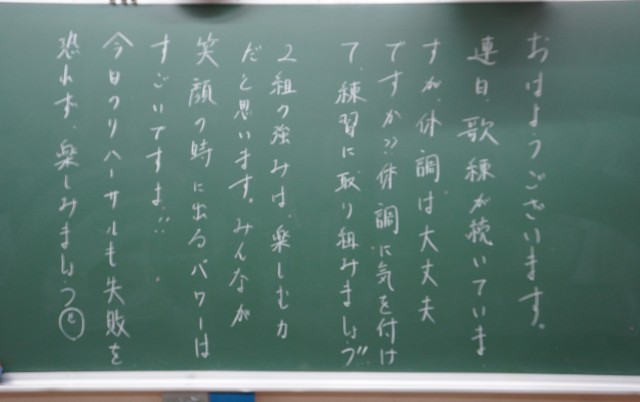 おはようございます。
連日、歌練が続いていま
すが、体調は大丈夫
ですか??体調に気を付け
て、練習に取り組みましょう!!
2組の強みは、楽しむ力
だと思います。みんなが
笑顔の時に出るパワーは
すごいですよ!!
今日のリハーサルも失敗を
恐れず、楽しみましょう